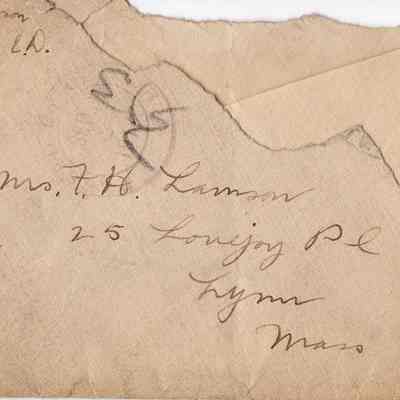 E.D.
Mrs. F. H. Lamson
25 Lovejoy Pl
Lynn
Mass